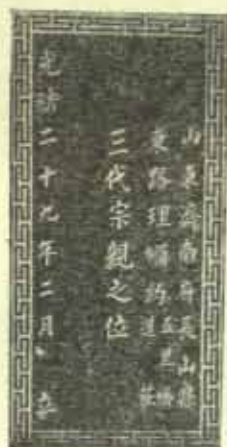 山東濟南府長山縣
東路理 約道 莊
三代宗親之位
光緒二十九年二月 立